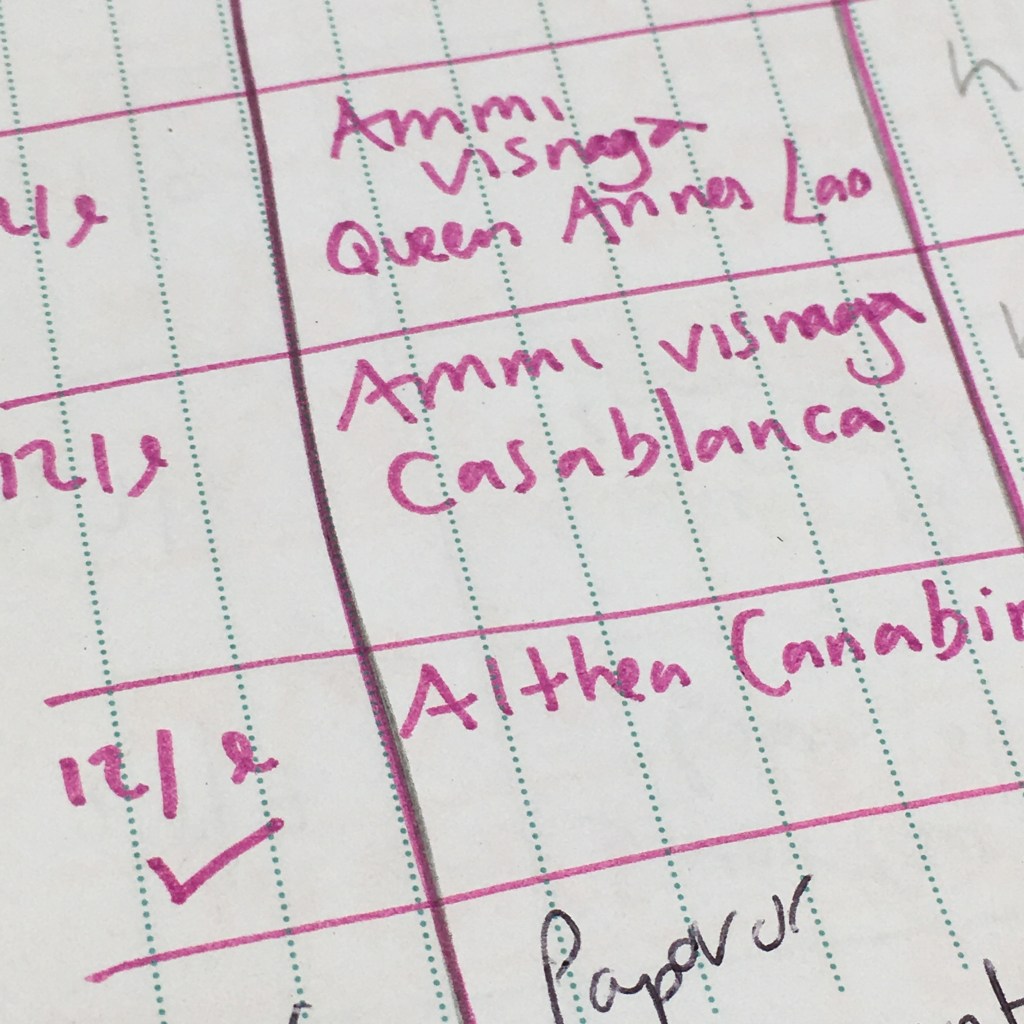 Ammi
visnaga
Queen Annes Lao
12/2
Ammi visnaga
Casablanca
12/2
Althea Canabin
12/2
Papavur